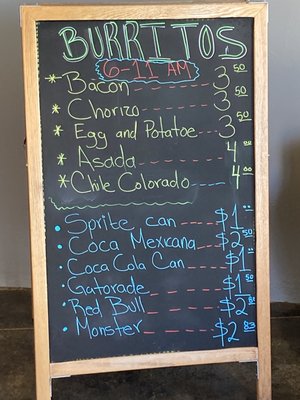 BURRITOS
6-11 AM
* Bacon --- 3 50
* Chorizo --- 3 50
* Egg and Potatoe --- 3 50
* Asada --- 4 00
* Chile Colorado --- 4 00
• Sprite can --- $1 00
• Coca Mexicana --- $2 50
• Coca Cola Can --- $1 00
• Gatorade --- $1 50
• Red Bull --- $2
• Monster --- $2